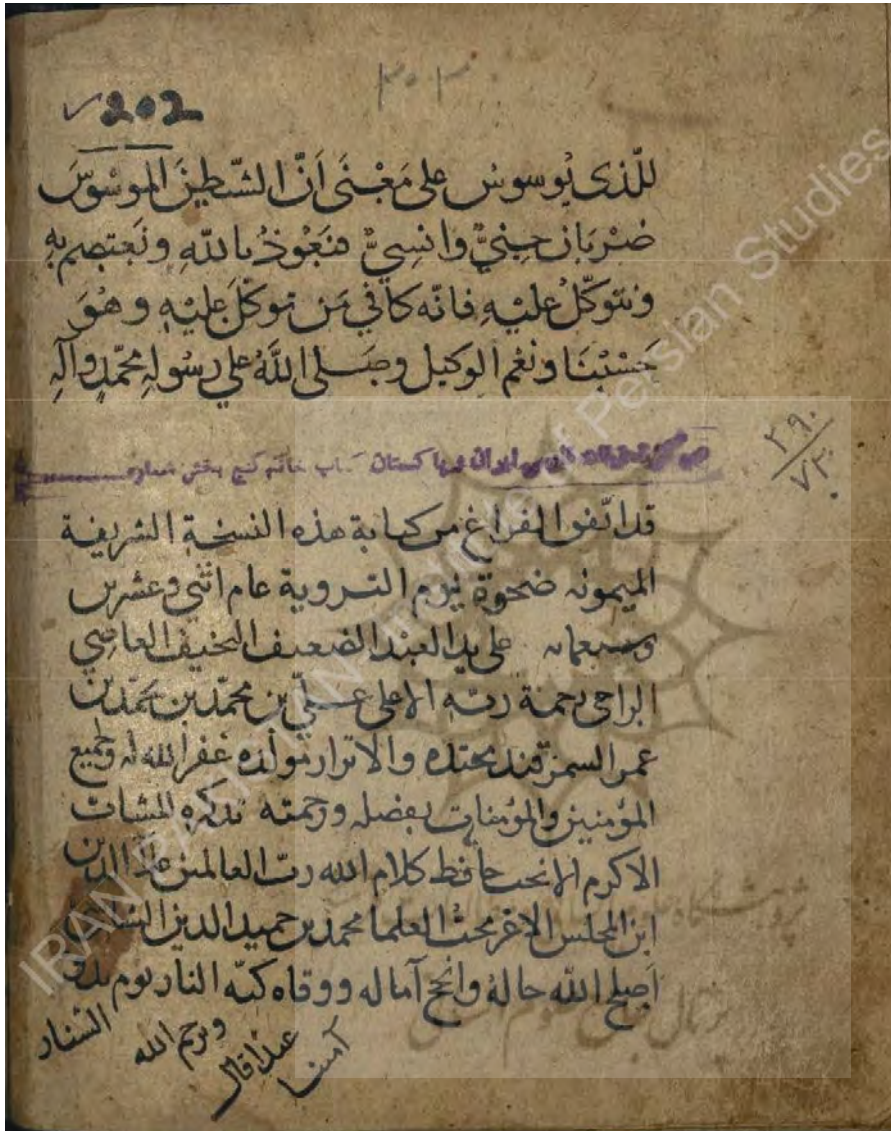 ۳۰۳
202
للّذى يُوسوسُ على مَعْنَى اَنّ الشّيطينَ الموسْوِسَ
ضَرْبَانِ جِنيٌّ وانسِيٌّ فنَعُوذُ باللهِ ونَعتصِم بِهِ
ونتوكّلُ عليْهِ فانّه كافي مَن توكّلَ عليْهِ وهُوَ
حَسْبُنَا ونعْم الوكيل وصَلى اللهُ على رسُولِهِ محمّدٍ وآلِهِ
۲۹۰
۷۳
ایران و پاکستان کتاب خانه گنج بخش شماره
قد اتّفق الفراغ من كتابة هذه النسخة الشريفة
الميمونه ضحوة يوم التروية عام اثنى وعشرين
وسبعمايه على يد العبد الضعيف النحيف العاصي
الراجى رحمة ربّه الاعلى على بن محمّد بن محمّد بن
عمر السمرقند محتده والاترار مولده غفر الله له ولجميع
المؤمنين والمؤمنات بفضله ورحمته تذكره
الاكرم الانجب حافظ كلام الله ربّ العالمين علاء الدين
ابن المجلس الاغر محبّ العلما محمد بن حميد الدين
اَصلح الله حالهُ وانجح آماله ووقاه كبّه النار يوم
الشنار
ويرحم الله
عبدًا قال
آمينا
پژوهشگاه علوم انسانی و مطالعات فرهنگی
پرتال جامع علوم انسانی
IRAN PAKISTAN Institute of Persian Studies